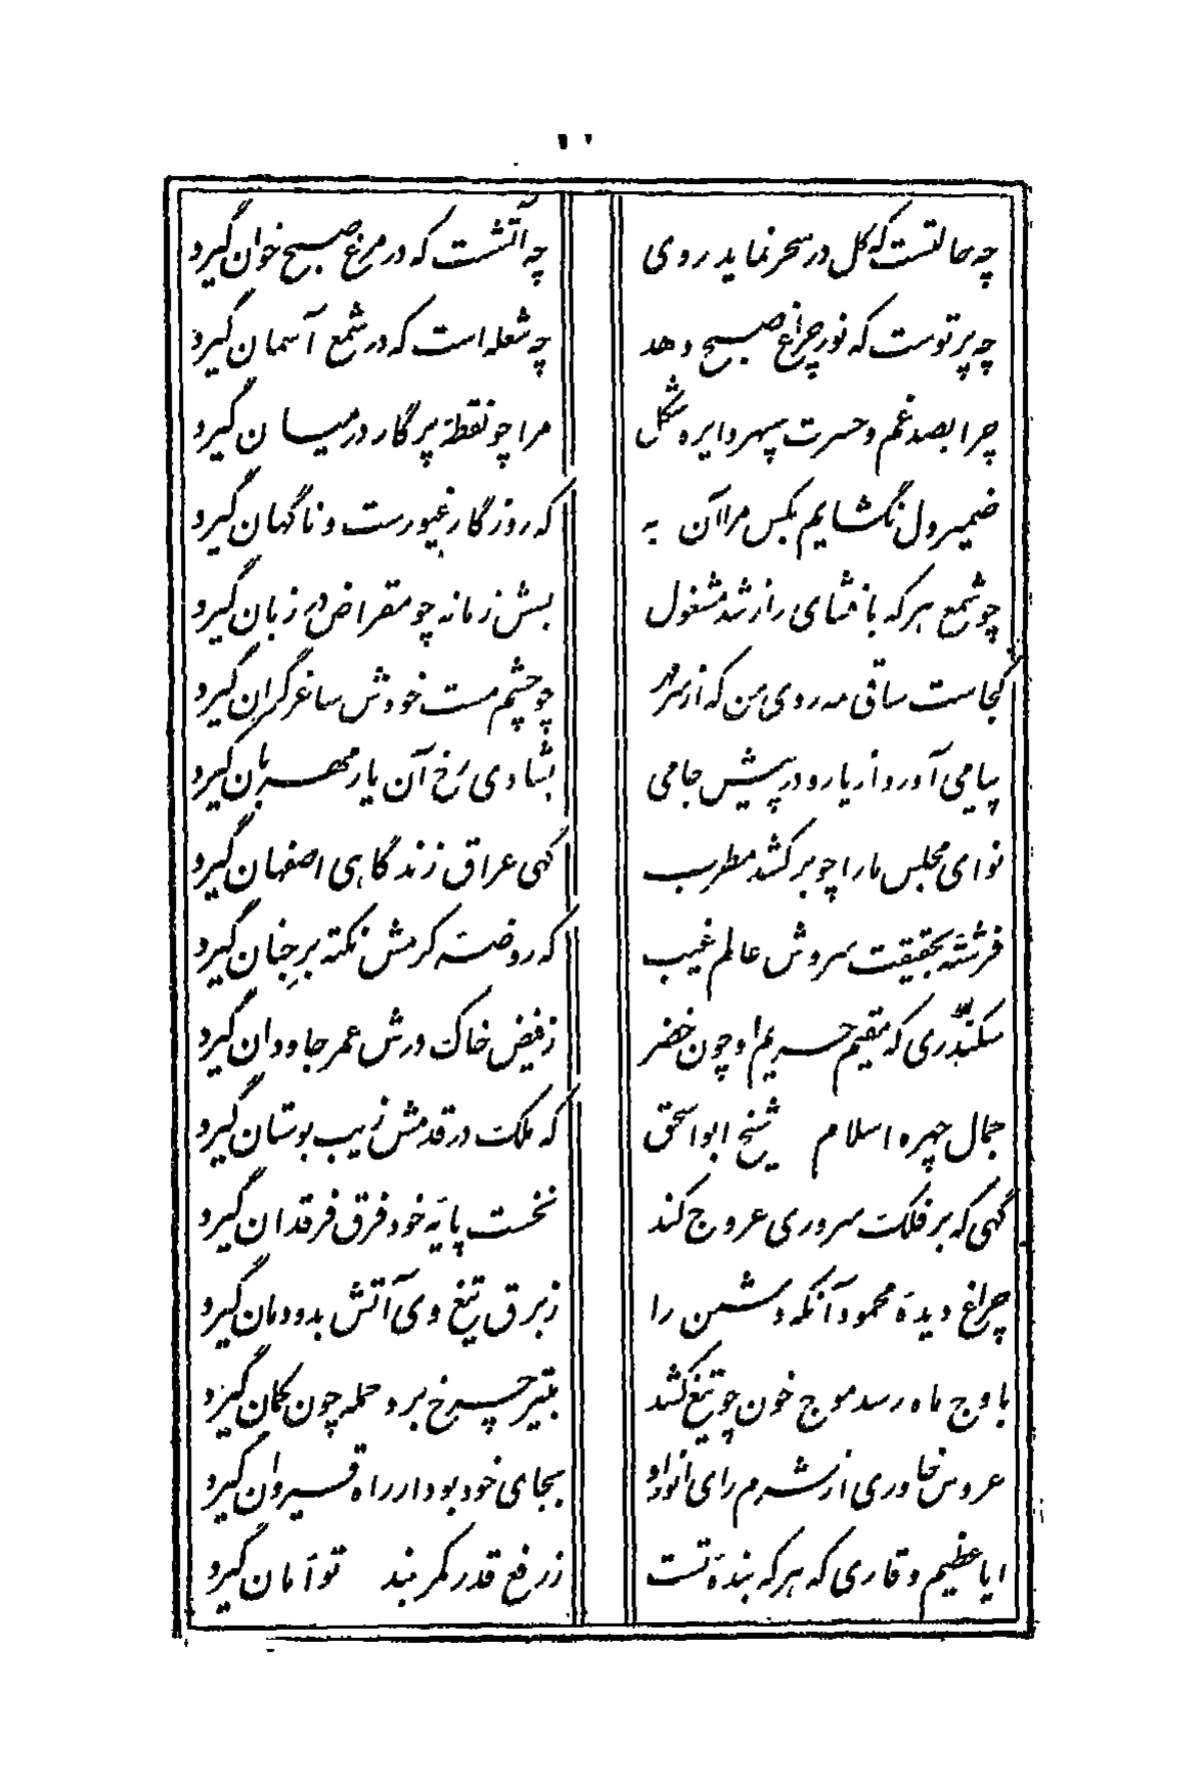 چه حالتست که گل در سحر نماید روی چه آتشست که در مرغ صبح خوان گیرد
چه پرتوست که نور چراغ صبح دهد چه شعله است که در شمع آسمان گیرد
چرا بصد غم و حسرت سپهر دایره شکل مرا چو نقطهٔ پرگار در میان گیرد
ضمیر دل نگشایم بکس مرا آن به که روزگار غیورست و ناگهان گیرد
چو شمع هر که بافشای راز شد مشغول بسش زمانه چو مقراض در زبان گیرد
کجاست ساقی مه روی من که از سر مهر چو چشم مست خودش ساغر گران گیرد
پیامی آورد از یار و در پیش جامی بشادی رخ آن یار مهربان گیرد
نوای مجلس ما را چو برکشد مطرب گهی عراق زند گاهی اصفهان گیرد
فرشتهٔ بحقیقت سروش عالم غیب که روضهٔ کرمش نکته بر جنان گیرد
سکندری که مقیم حریم او چون خضر ز فیض خاک درش عمر جاودان گیرد
جمال چهره اسلام شیخ ابو اسحق که ملک در قدمش زیب بوستان گیرد
گهی که بر فلک سروری عروج کند نخست پایهٔ خود فرق فرقدان گیرد
چراغ دیدهٔ محمود آنکه دشمن را ز برق تیغ وی آتش بدودمان گیرد
باوج ماه رسد موج خون چو تیغ کشد بتیر چرخ برد حمله چون کمان گیرد
عروس خاوری از شرم رای انور او بجای خود بود ار راه قیروان گیرد
ایا عظیم وقاری که هر که بندهٔ تست ز رفع قدر کمربند توأمان گیرد